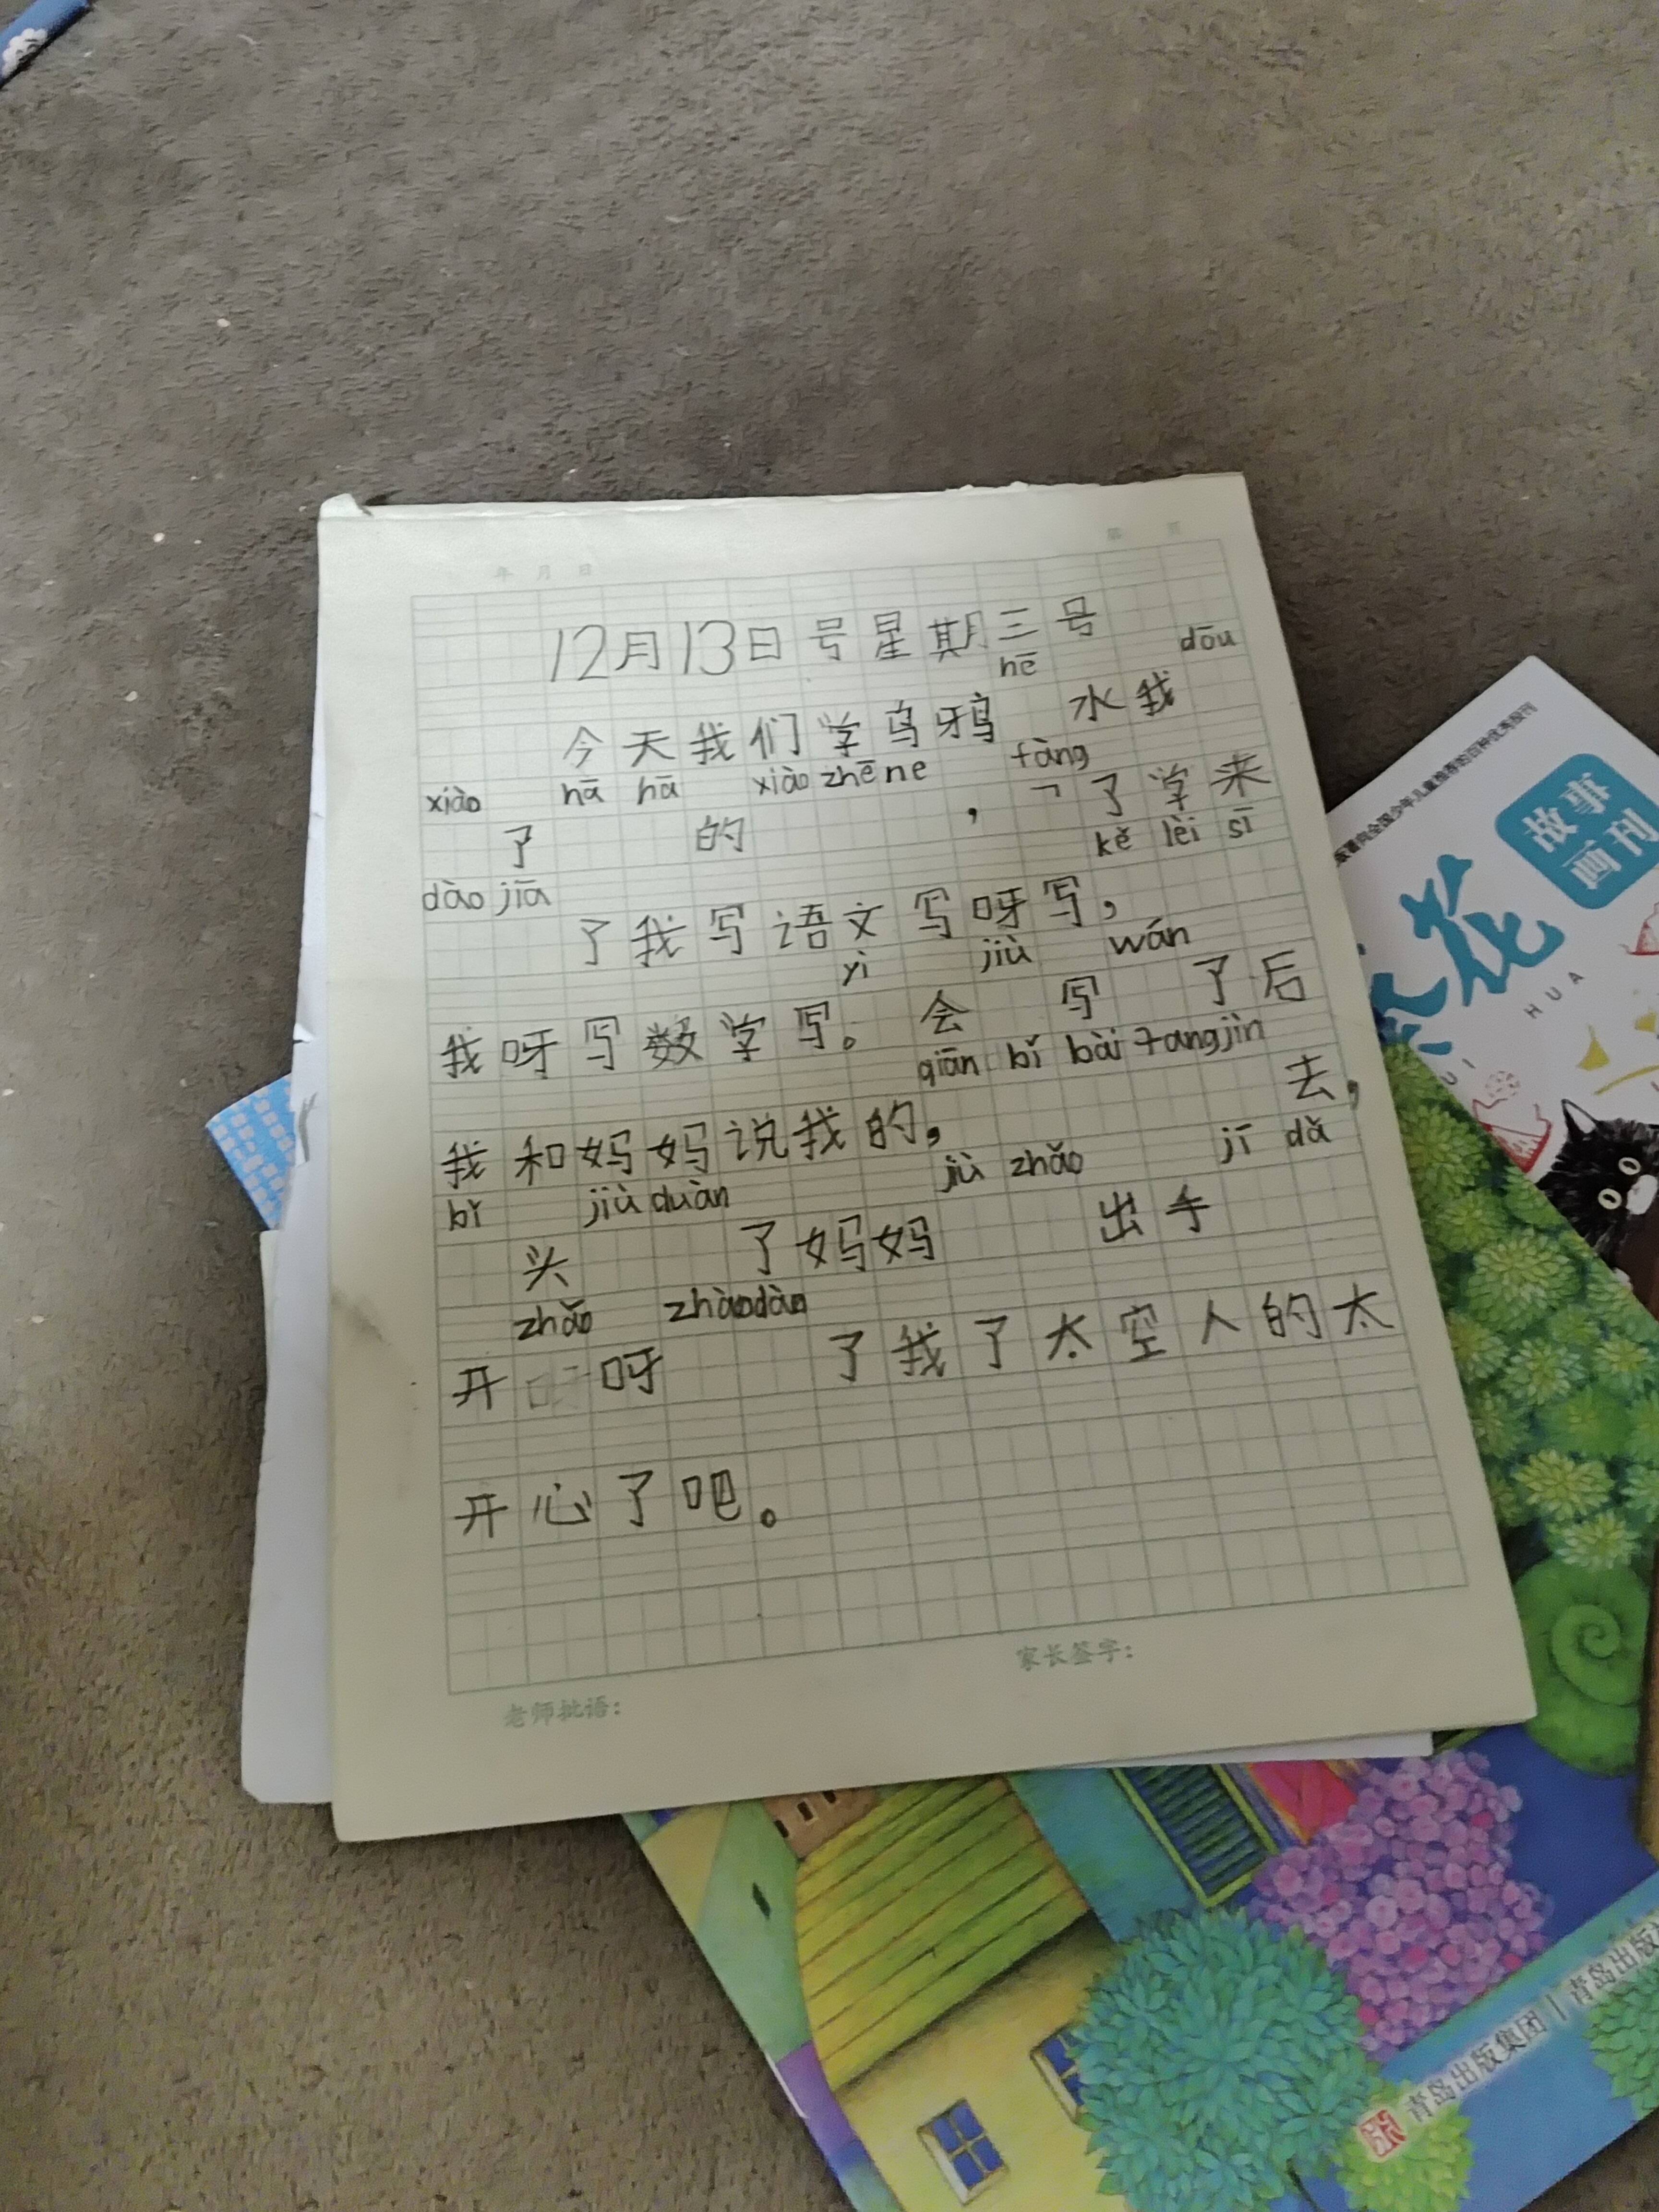 年 月 日
第 页
12月13日号星期三号
hē dōu
今天我们学乌鸦 水我
xiào hā hā xiào zhē ne fàng
了 的 , 了学来
dào jiā kě lèi sī
了我写语文写呀写,
yì jiù wán
我呀写数学写。会 写 了后
qiān bǐ bài fang jìn
我和妈妈说我的, 去,
bǐ jiù duàn jiù zhǎo jī dǎ
头 了妈妈 出手
zhǎo zhàodào
开呀 了我了太空人的太
开心了吧。
老师批语:
家长签字:
故事
画刊
花
HUA
青岛出版集团 | 青岛出版